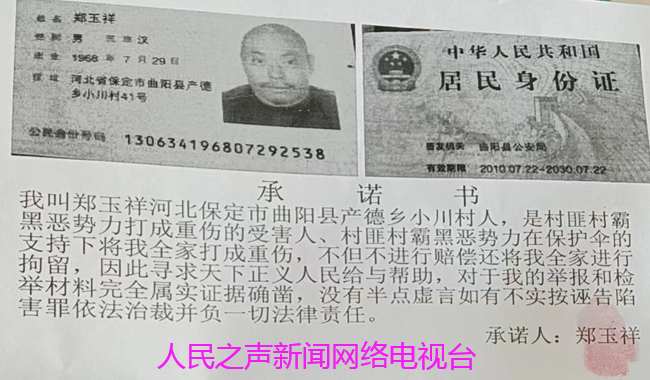 姓名 郑玉祥
性别 男 民族 汉
出生 1968 年 7 月 29 日
住址 河北省保定市曲阳县产德
乡小川村41号
公民身份号码 130634196807292538
中华人民共和国
居民身份证
签发机关 曲阳县公安局
有效期限 2010.07.22-2030.07.22
承 诺 书
我叫郑玉祥河北保定市曲阳县产德乡小川村人，是村匪村霸
黑恶势力打成重伤的受害人、村匪村霸黑恶势力在保护伞的
支持下将我全家打成重伤，不但不进行赔偿还将我全家进行
拘留，因此寻求天下正义人民给与帮助，对于我的举报和检
举材料完全属实证据确凿，没有半点虚言如有不实按诬告陷
害罪依法治裁并负一切法律责任。
承诺人：郑玉祥
人民之声新闻网络电视台